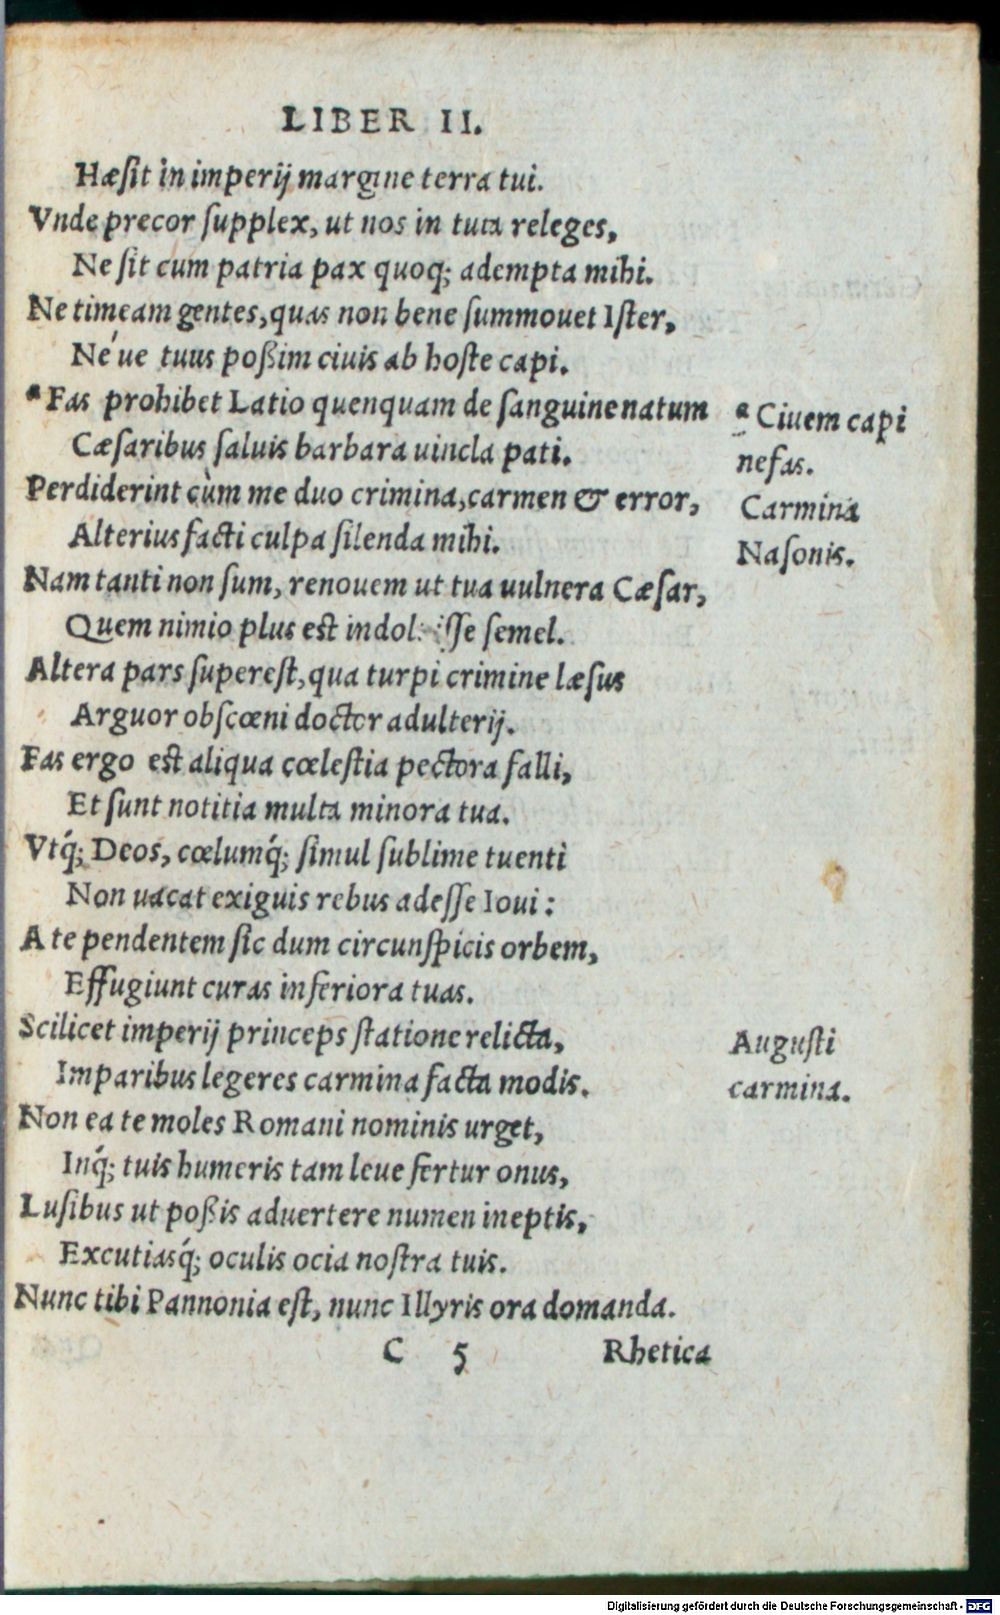 LIBER II.
Hæſit in imperij margine terra tui.
Vnde precor ſupplex, ut nos in tuta releges,
Ne ſit cum patria pax quoq; adempta mihi.
Ne timeam gentes, quas non bene ſummouet Iſter,
Né ue tuus poßim ciuis ab hoſte capi.
a Fas prohibet Latio quenquam de ſanguine natum
Cæſaribus ſaluis barbara uincla pati.
Perdiderint cùm me duo crimina, carmen & error,
Alterius facti culpa ſilenda mihi.
Nam tanti non ſum, renouem ut tua uulnera Cæſar,
Quem nimio plus est ſemel.
Altera pars ſupereſt, qua turpi crimine læſus
Arguor obſcœni doctor adulterij.
Fas ergo est aliqua cœleſtia pectora falli,
Et ſunt notitia multa minora tua.
Vtq́; Deos, cœlumq́; ſimul ſublime tuenti
Non uacat exiguis rebus adeſſe Ioui:
A te pendentem ſic dum circunſpicis orbem,
Effugiunt curas inferiora tuas.
Scilicet imperij princeps ſtatione relicta,
Imparibus legeres carmina facta modis.
Non ea te moles Romani nominis urget,
Inq́; tuis humeris tam leue fertur onus,
Luſibus ut poßis aduertere numen ineptis,
Excutiasq́; oculis ocia noſtra tuis.
Nunc tibi Pannonia eſt, nunc Illyris ora domanda.
C 5 Rhetica
a Ciuem capi
nefas.
Carmina
Naſonis.
Auguſti
carmina.
Digitalisierung gefördert durch die Deutsche Forschungsgemeinschaft - DFG